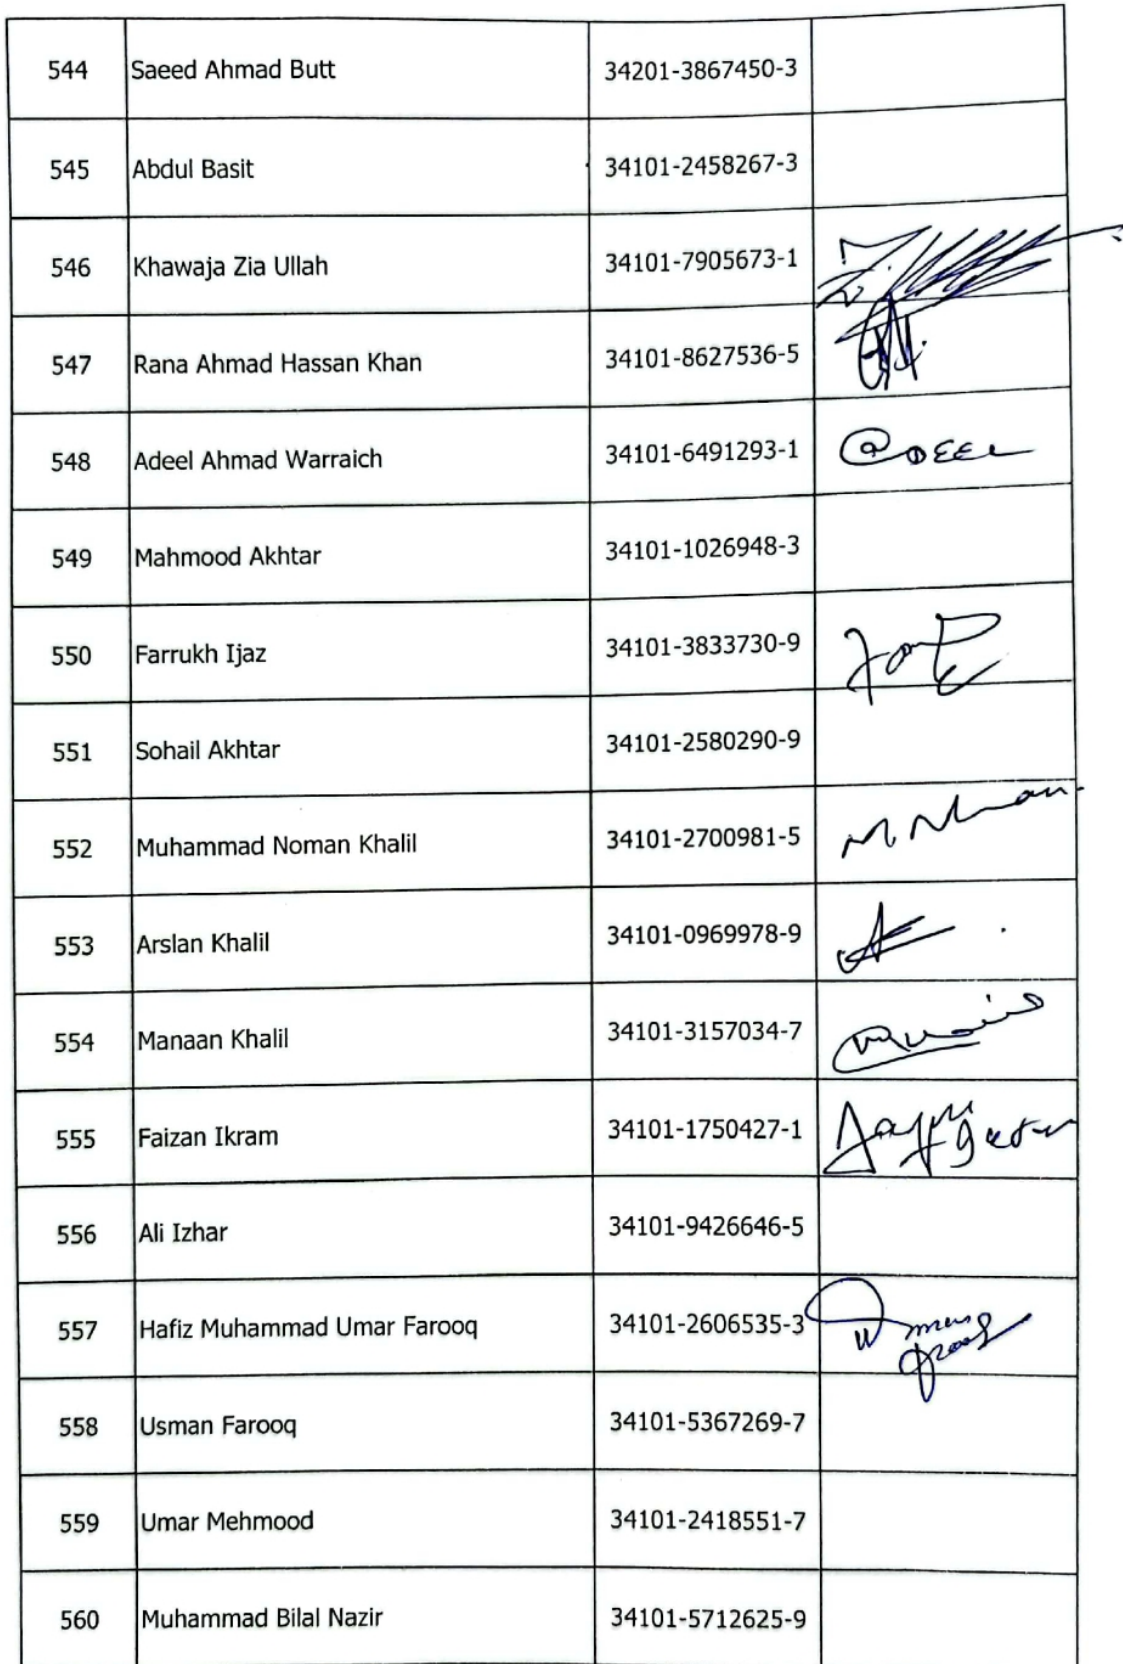 544 Saeed Ahmad Butt 34201-3867450-3
545 Abdul Basit 34101-2458267-3
546 Khawaja Zia Ullah 34101-7905673-1
547 Rana Ahmad Hassan Khan 34101-8627536-5
548 Adeel Ahmad Warraich 34101-6491293-1 @DEEL
549 Mahmood Akhtar 34101-1026948-3
550 Farrukh Ijaz 34101-3833730-9
551 Sohail Akhtar 34101-2580290-9
552 Muhammad Noman Khalil 34101-2700981-5
553 Arslan Khalil 34101-0969978-9
554 Manaan Khalil 34101-3157034-7
555 Faizan Ikram 34101-1750427-1
556 Ali Izhar 34101-9426646-5
557 Hafiz Muhammad Umar Farooq 34101-2606535-3
558 Usman Farooq 34101-5367269-7
559 Umar Mehmood 34101-2418551-7
560 Muhammad Bilal Nazir 34101-5712625-9